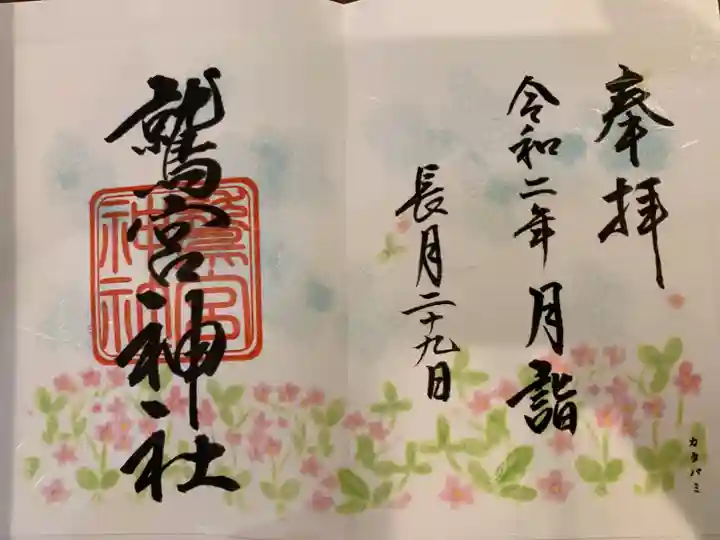 奉拝
令和二年 月詣
長月二十九日
カタバミ
鷲宮神社
鷲宮
神社